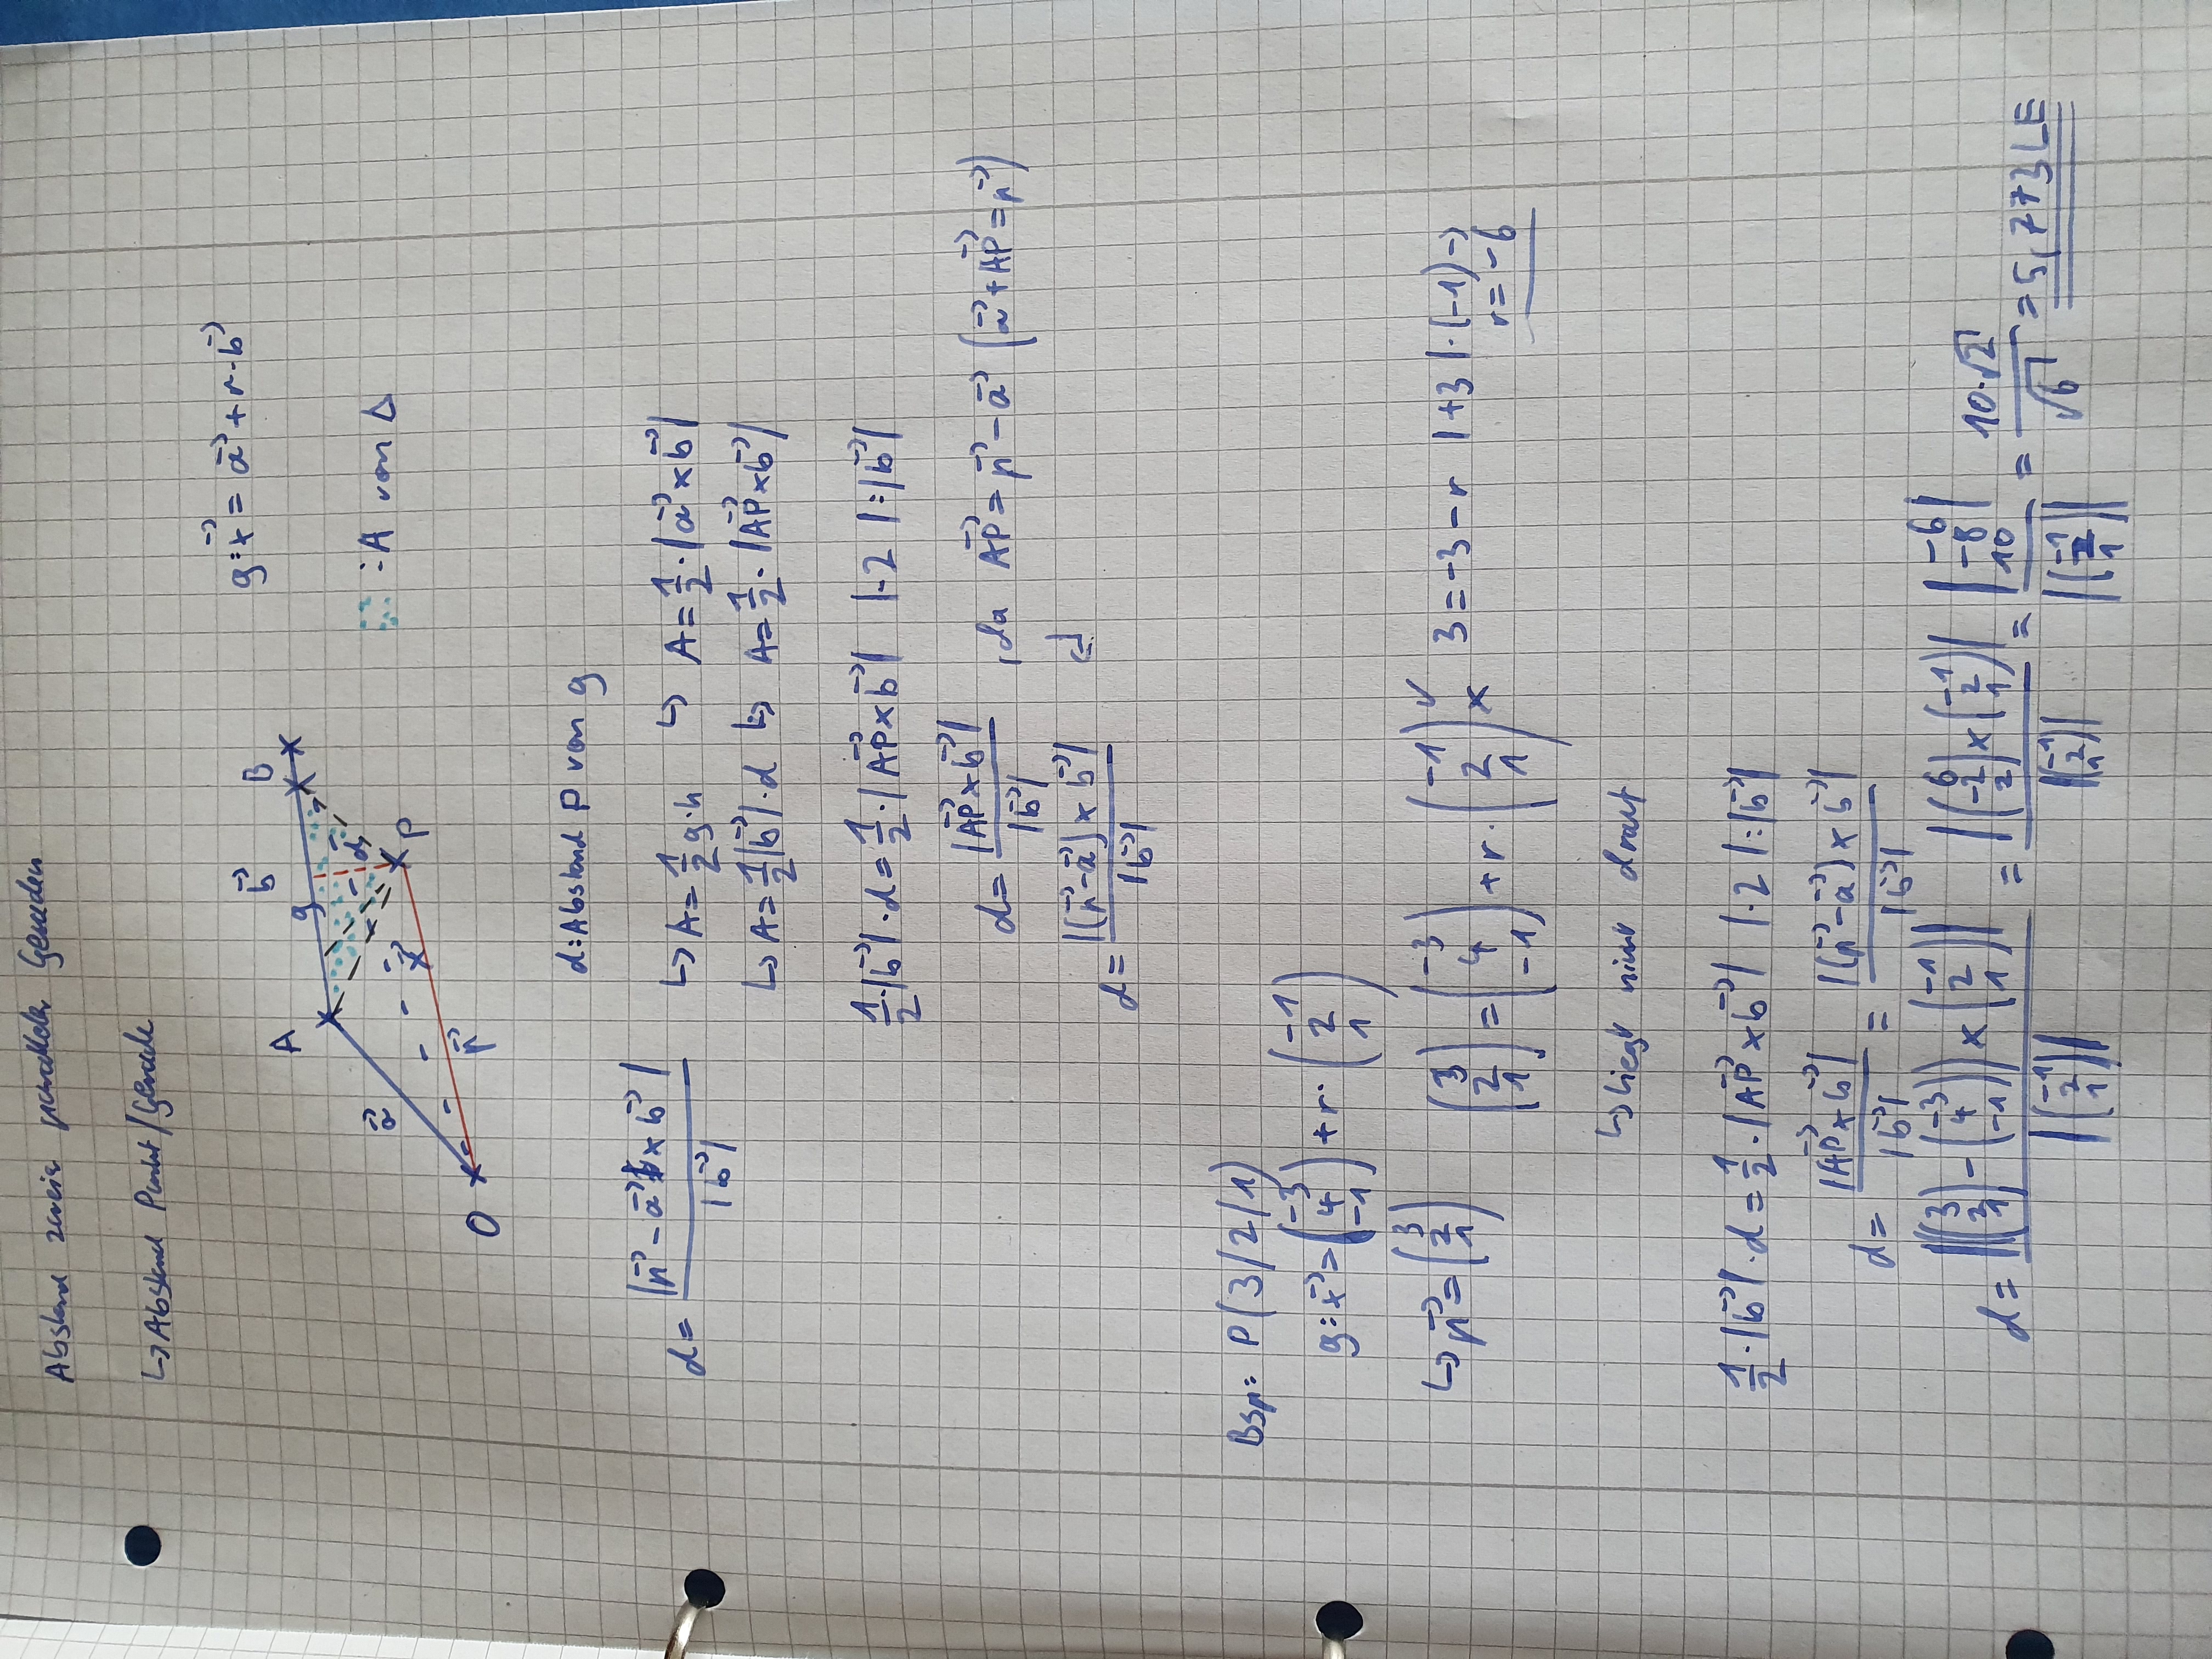 Abstand zweier paralleler Geraden
↳ Abstand Punkt/Gerade
g: x⃗ = a⃗ + r · b⃗
b⃗
B
A
g
d
: A von Δ
a⃗
x⃗
P
O
p⃗
d: Abstand P von g
d = |p⃗ - a⃗ × b⃗| / |b⃗|
↳ A = 1/2 g · h ↳ A = 1/2 · |a⃗ × b⃗|
↳ A = 1/2 |b⃗| · d ↳ A = 1/2 · |AP⃗ × b⃗|
1/2 · |b⃗| · d = 1/2 · |AP⃗ × b⃗| | · 2 | : |b⃗|
d = |AP⃗ × b⃗| / |b⃗| , da AP⃗ = p⃗ - a⃗ (a⃗ + AP⃗ = p⃗)
d = |(p⃗ - a⃗) × b⃗| / |b⃗| ↲
Bsp: P(3/2/1)
g: x⃗ = (-3 4 -1) + r · (-1 2 1)
↳ p⃗ = (3 2 1) (3 2 1) = (-3 4 -1) + r · (-1 2 1) ✓ × 3 = -3 - r | +3 | · (-1) →
r = -6
↳ liegt nicht drauf
1/2 · |b⃗| · d = 1/2 · |AP⃗ × b⃗| | · 2 | : |b⃗|
d = |AP⃗ × b⃗| / |b⃗| = |(p⃗ - a⃗) × b⃗| / |b⃗|
d = |((3 2 1) - (-3 4 -1)) × (-1 2 1)| / |(-1 2 1)| = |(6 -2 2) × (-1 2 1)| / |(-1 2 1)| = |-6 -8 10| / |(-1 2 1)| = 10·√2 / √6 = 5,773 LE